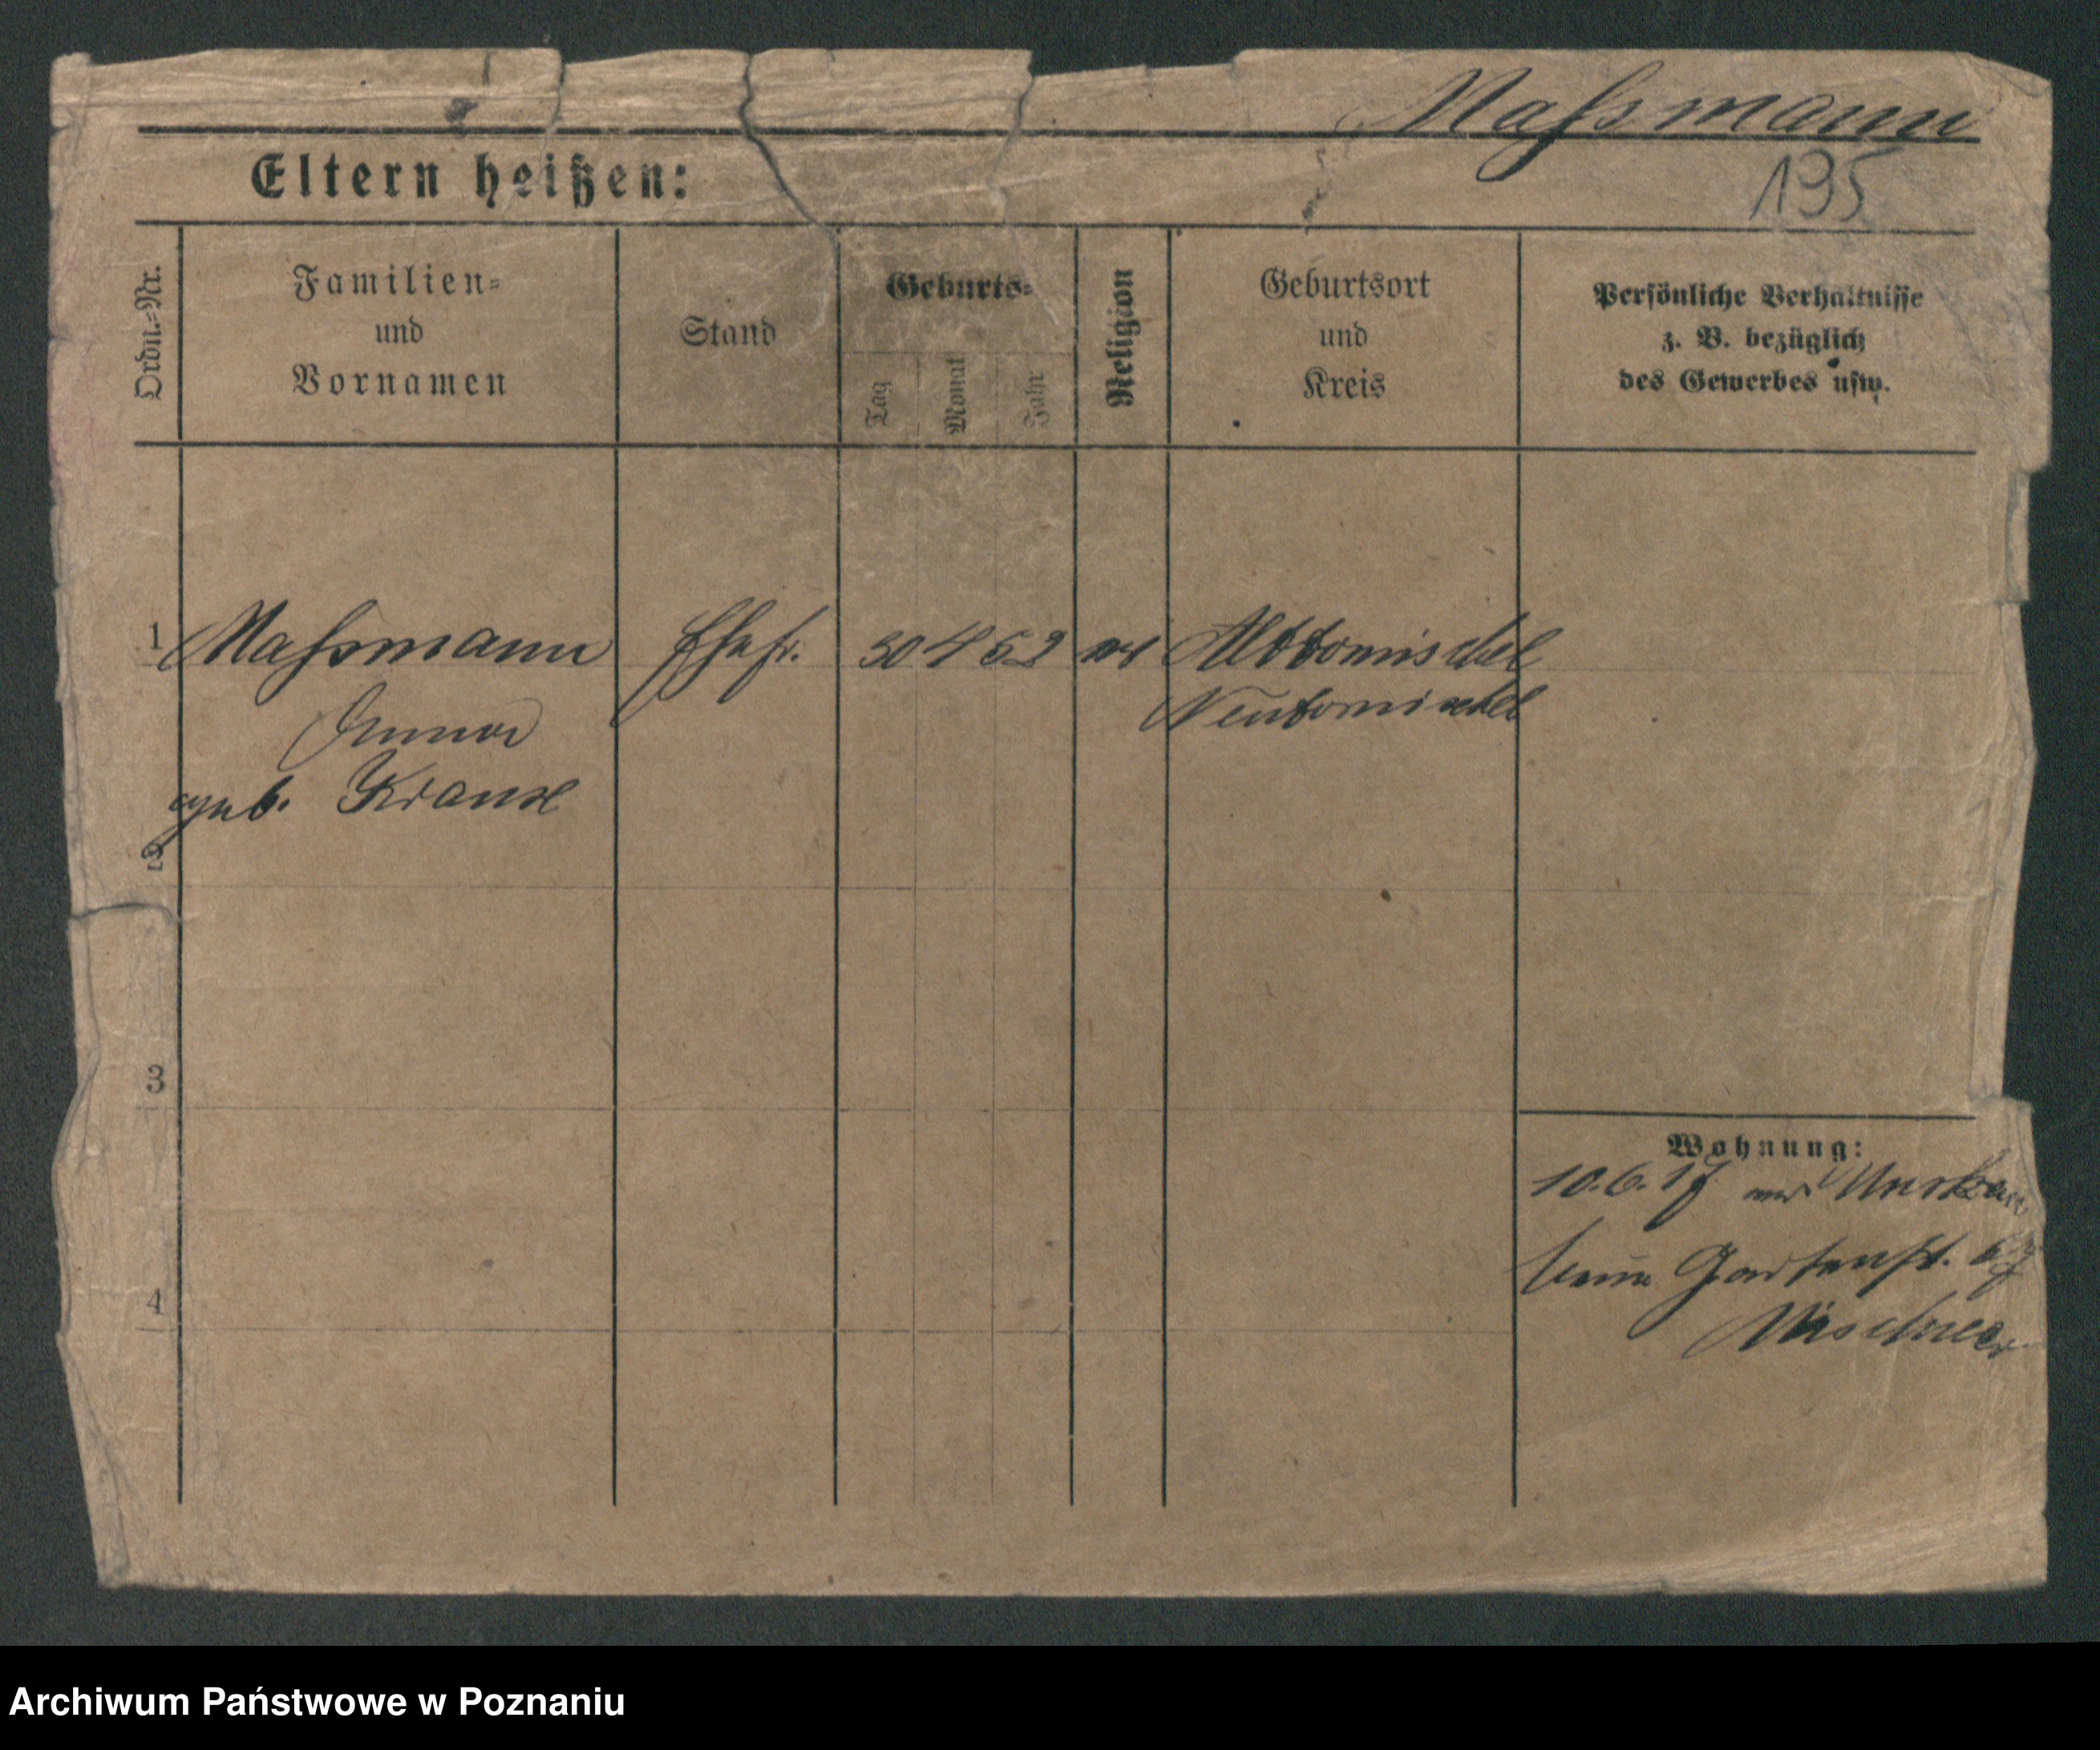 Maſsmann
195
Eltern heißen:
Ordn.=Nr.
Familien=
und
Vornamen
Stand
Geburts=
Tag
Monat
Jahr
Religion
Geburtsort
und
Kreis
Persönliche Verhältnisse
z. B. bezüglich
des Gewerbes usw.
1 Maſsmann Ehefr. 30 4 52 Alttomischel
Neutomischel
geb. Krause
2
3
4
Wohnung:
10.6.17
Gartenst.
Archiwum Państwowe w Poznaniu